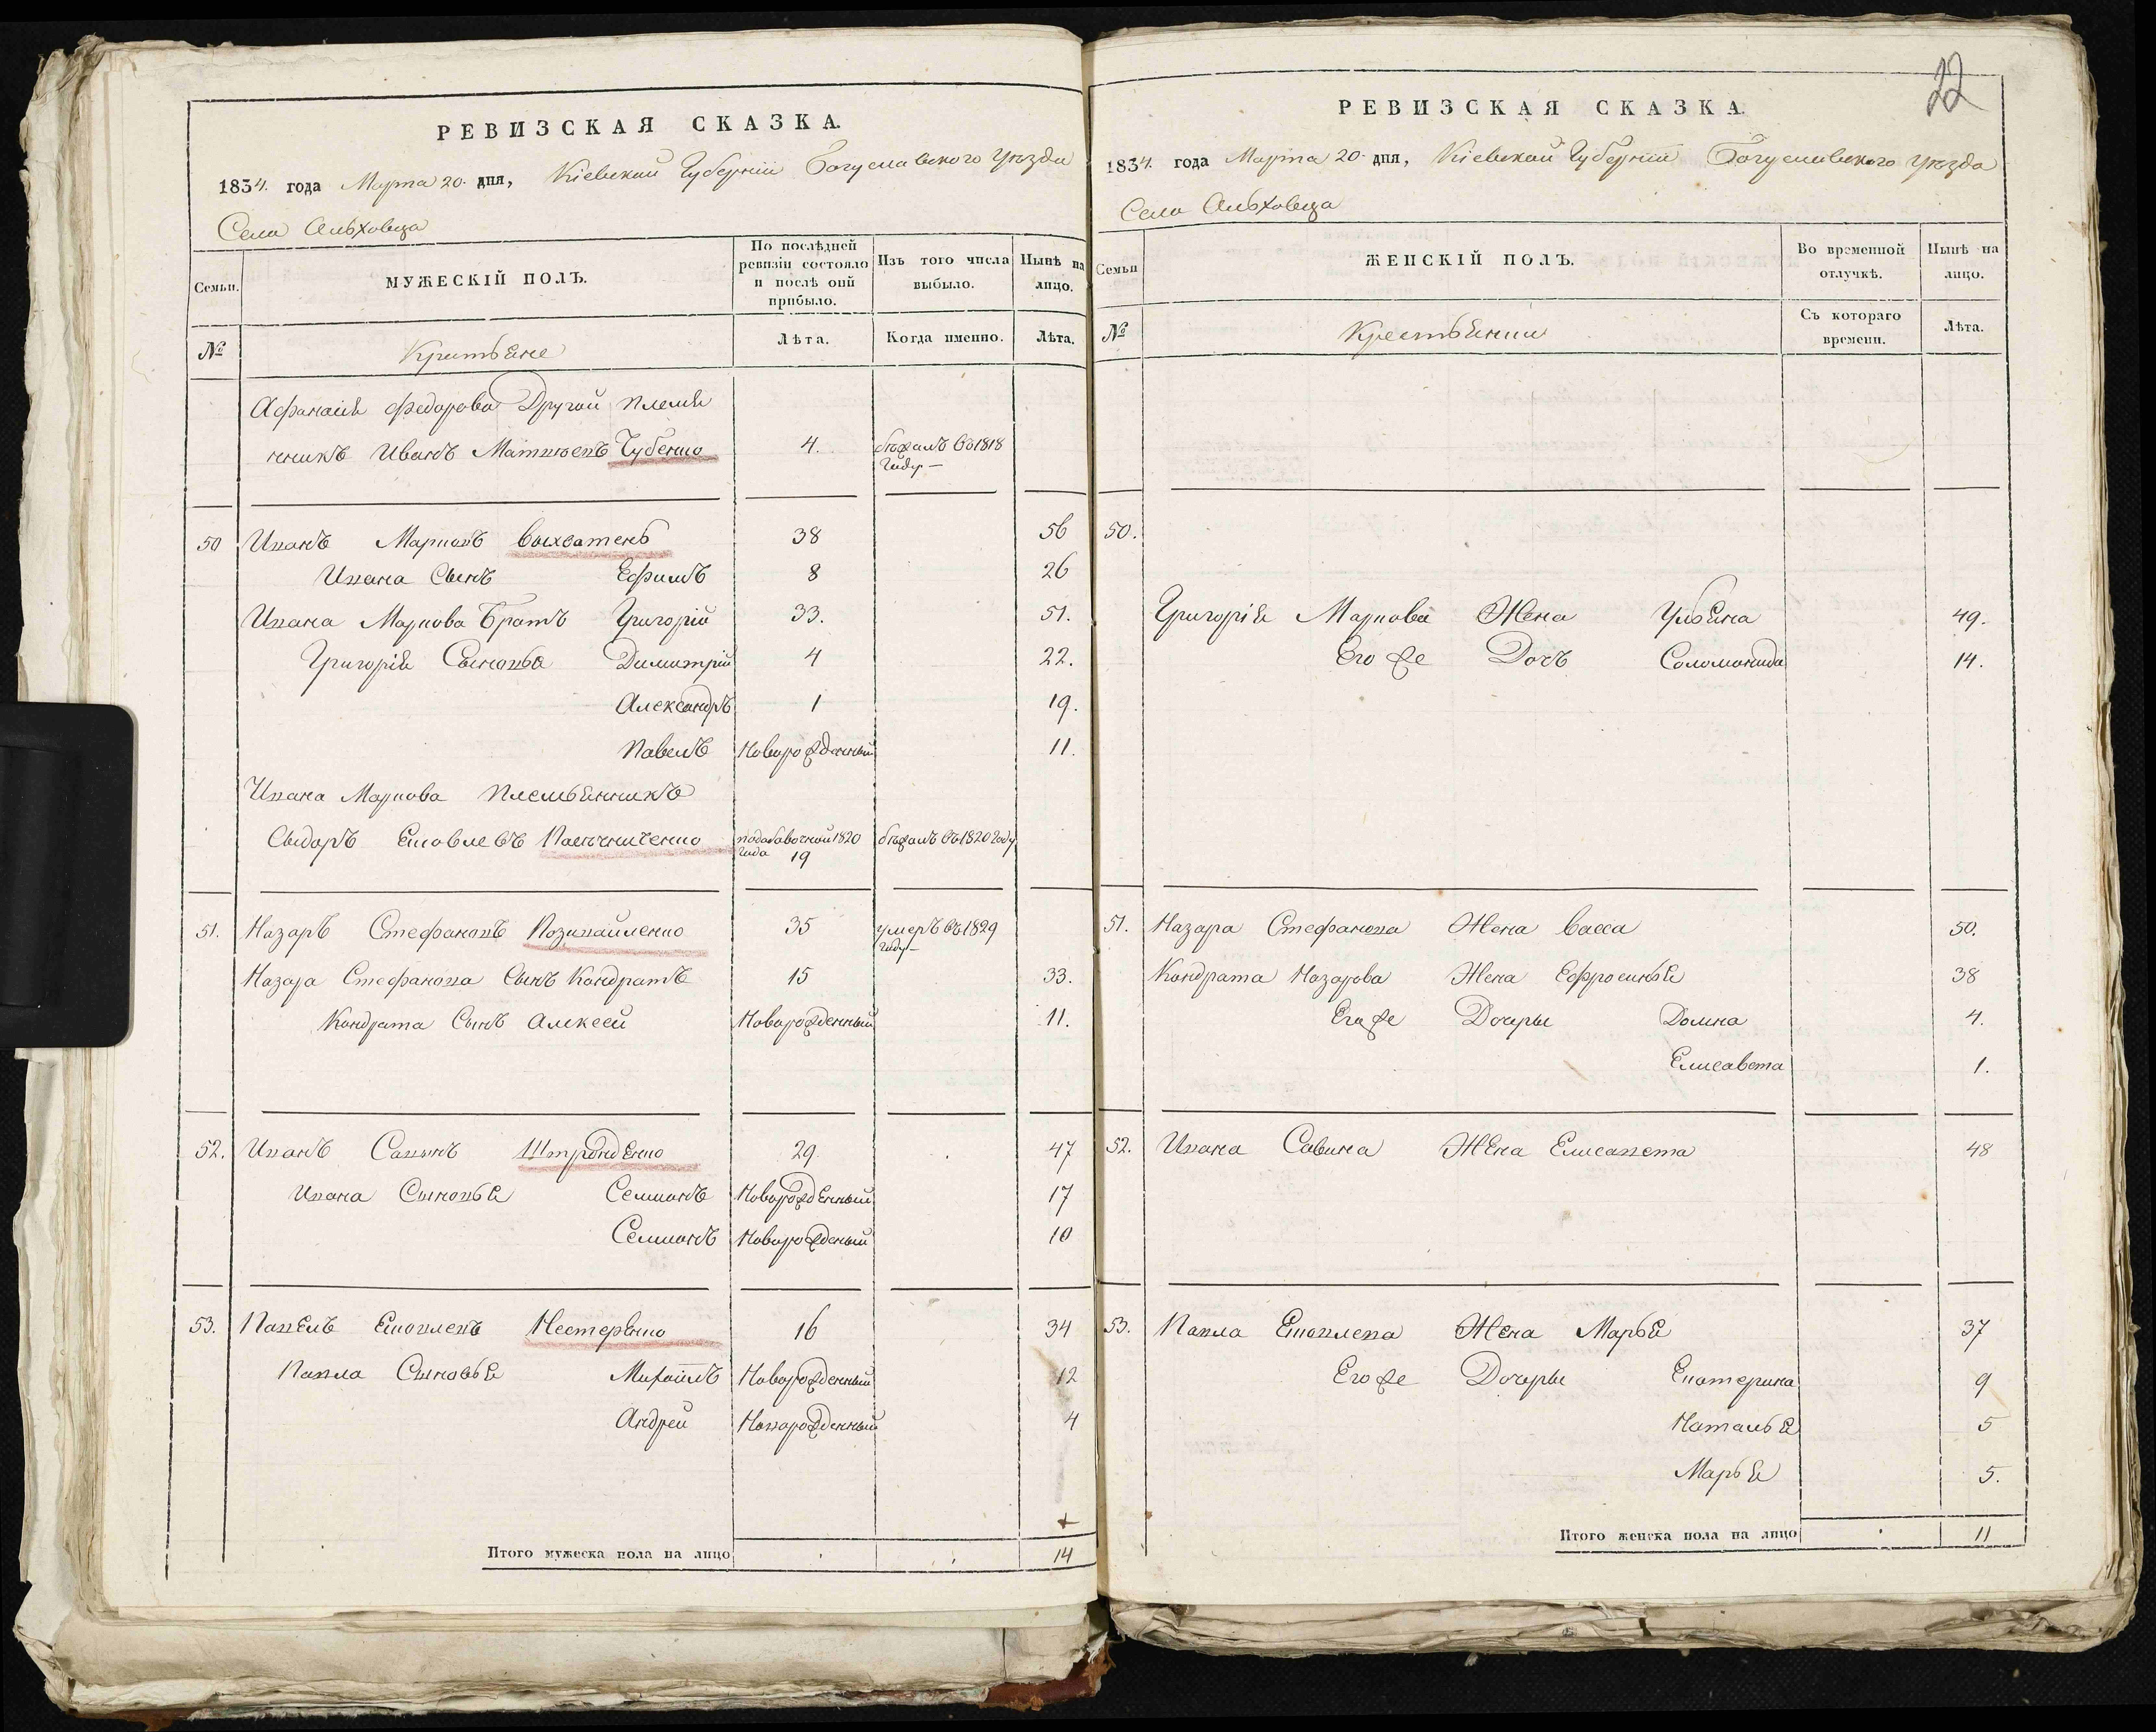 РЕВИЗСКАЯ СКАЗКА.
1834. года Марта 20. дня, Кіевской Губерніи Богуславского Уѣзда
Села Ольховца
Семьи. МУЖЕСКІЙ ПОЛЪ. По послѣдней ревизіи состояло и послѣ оной прибыло. Изъ того числа выбыло. Нынѣ на лицо.
№ Лѣта. Когда именно. Лѣта.
Афанасія Федорова Другой племя
нникъ Иванъ Матвѣевъ Чубенко 4. бѣжалъ въ 1818
Году
50 Иванъ Марковъ Выхватень 38 56
Ивана Сынъ Ефимъ 8 26
Ивана Маркова Братъ Григорій 33. 51.
Григорія Сыновья Димитрій 4 22.
Александръ 1 19.
Павелъ Новорожденный 11.
Ивана Маркова Племьянникъ
Сыдоръ Яковлевъ 1820 бѣжалъ въ 1820 Году
года 19
51. Назаръ Стефановъ 35 умеръ въ 1829
году
Назара Стефанова Сынъ Кондратъ 15 33.
Кондрата Сынъ Алексей Новорожденный 11.
52. Иванъ Савинъ 29. 47
Ивана Сыновья Семионъ Новорожденный 17
Семионъ Новорожденый 10
53. Павелъ Яковлевъ Нестеренко 16 34
Павла Сыновья Михаилъ Новорожденный 12
Андрей Новорожденный 4
Итого мужеска пола на лицо 14
22
РЕВИЗСКАЯ СКАЗКА.
1834. года Марта 20. дня, Кіевской Губерніи Богуславского Уѣзда
Села Ольховца
Семьи ЖЕНСКІЙ ПОЛЪ. Во временной отлучкѣ. Нынѣ на лицо.
№ Съ котораго времени. Лѣта.
50.
Григорія Маркова Жена Ульяна 49.
Его же Дочь Соломонида 14.
51. Назара Стефанова Жена Васса 50.
Кондрата Назарова Жена Ефросинья 38
Его же Дочеры Домна 4.
Елисавета 1.
52. Ивана Савина Жена Елисавета 48
53. Павла Яковлева Жена Марья 37
Его же Дочеры Екатерина 9
Наталья 5
Марья 5.
Итого женска пола на лицо 11